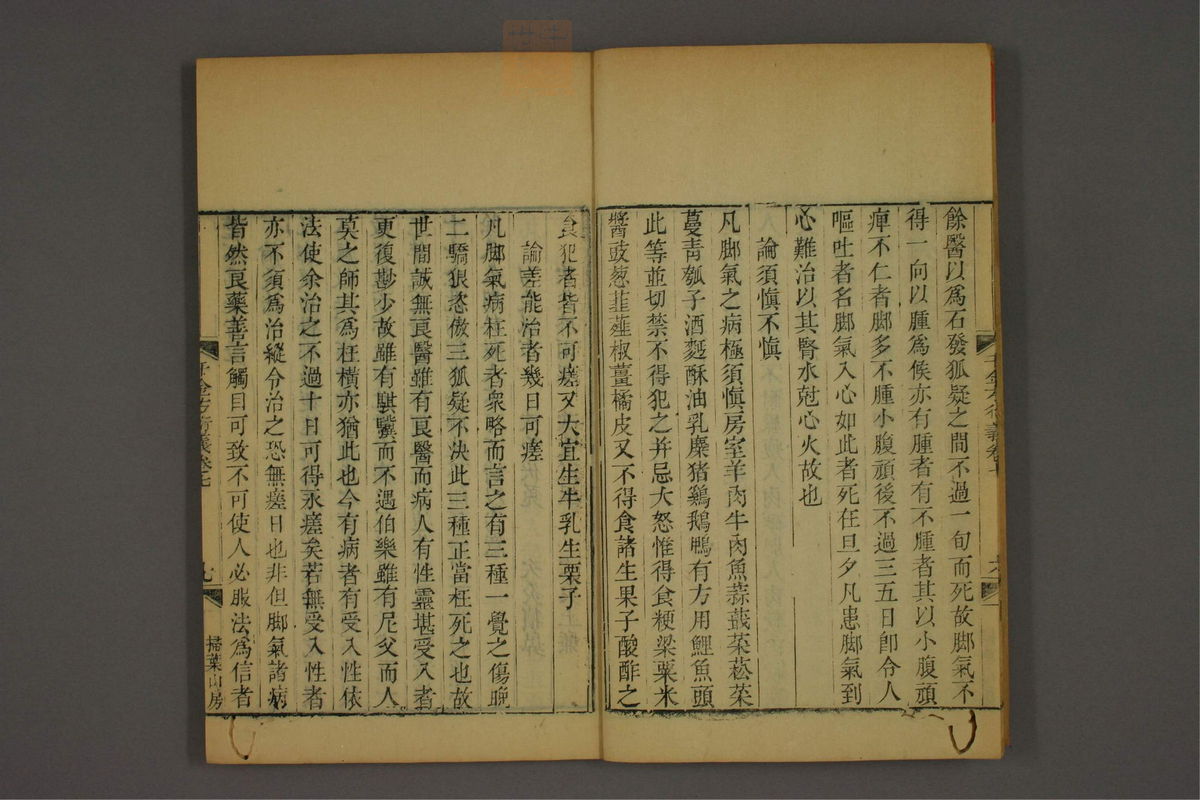 餘醫以爲石發狐疑之間不過一旬而死故脚氣不
得一向以腫爲候亦有腫者有不腫者其以小腹頑
痺不仁者脚多不腫小腹頑後不過三五日卽令人
嘔吐者名脚氣入心如此者死在旦夕凡患脚氣到
心難治以其腎水尅心火故也
論須愼不愼
凡脚氣之病極須愼房室羊肉牛肉魚蒜蕺菜菘菜
蔓菁瓠子酒麪酥油乳麋猪鷄鵝鴨有方用鯉魚頭
此等並切禁不得犯之幷忌大怒惟得食粳粱粟米
醬豉葱韭薤椒薑橘皮又不得食諸生果子酸酢之
食犯者皆不可瘥又大宜生牛乳生栗子
論差能治者幾日可瘥
凡脚氣病枉死者衆略而言之有三種一覺之傷晚
二驕狠恣傲三狐疑不決此三種正當枉死之也故
世間誠無良醫雖有良醫而病人有性靈堪受入者
更復尠少故雖有騏驥而不遇伯樂雖有尼父而人
莫之師其爲枉橫亦猶此也今有病者有受入性依
法使余治之不過十日可得永瘥矣若無受入性者
亦不須爲治縱令治之恐無瘥日也非但脚氣諸病
皆然良藥善言觸目可致不可使人必服法爲信者
千金方衍義卷七
掃葉山房